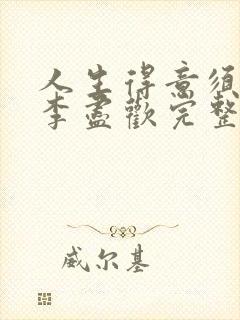 人生得意须
李盡歡完整
威尔基